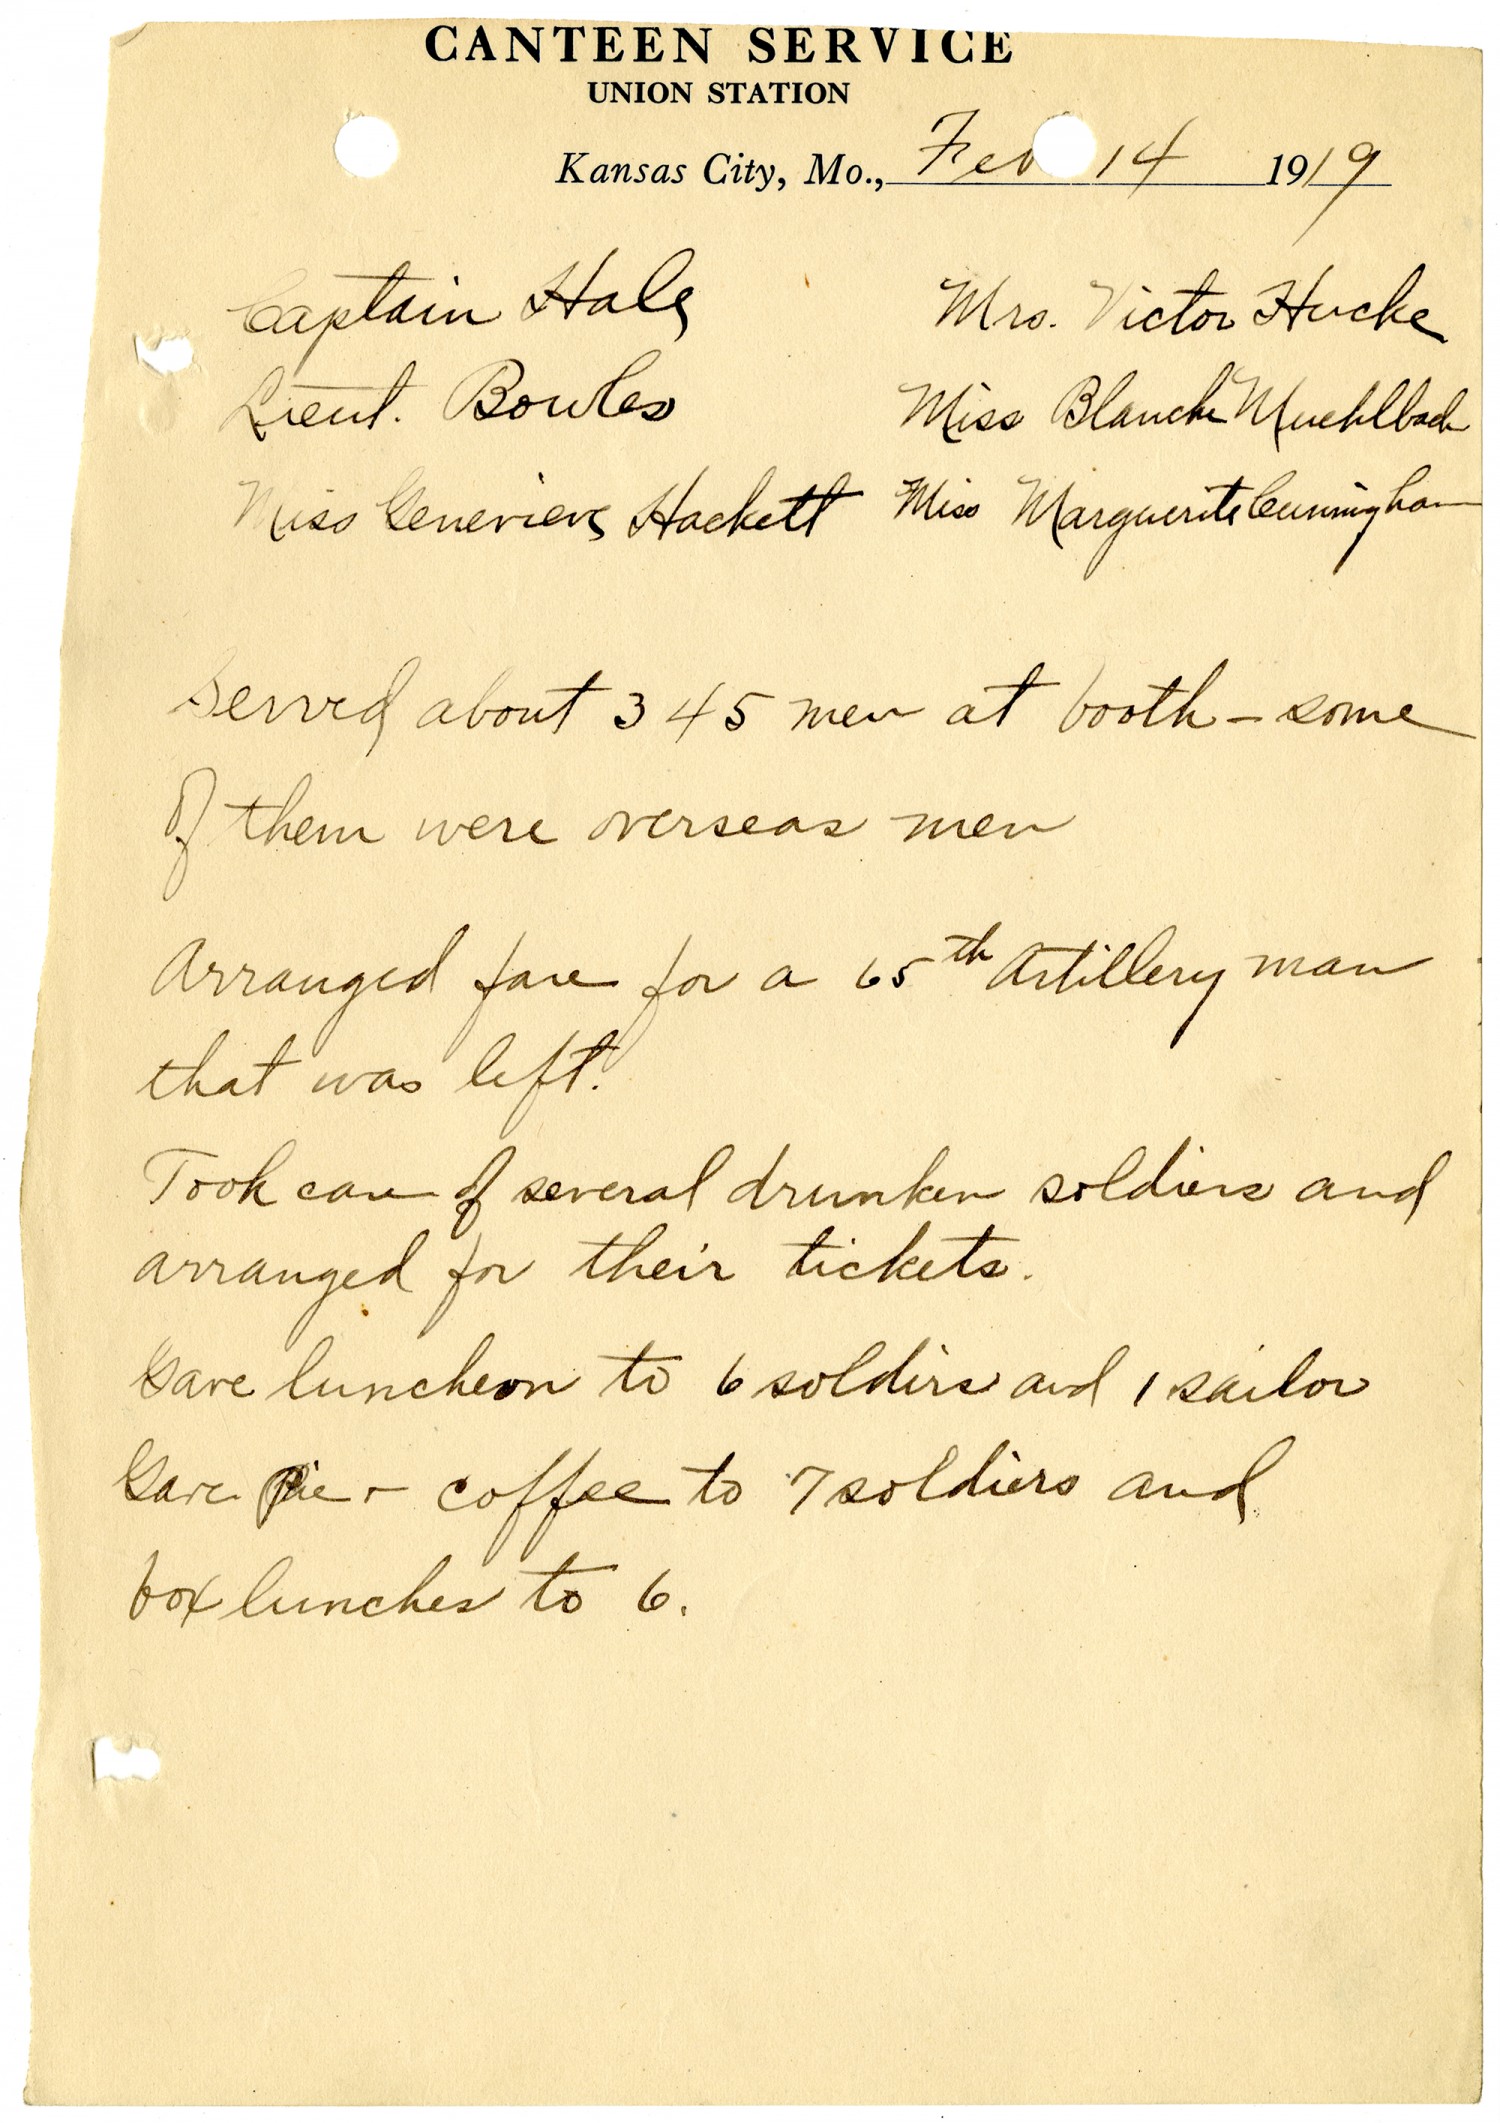 CANTEEN SERVICE
UNION STATION
Kansas City, Mo., Feb 14 1919
Captain Hale Mrs. Victor Hucke
Lieut. Bowles Miss Blanche Muehlbach
Miss Genevieve Hackett Miss Marguerite Cunningham
Served about 345 men at booth - some
of them were overseas men
Arranged fare for a 65th Artillery man
that was left.
Took care of several drunken soldiers and
arranged for their tickets.
Gave luncheon to 6 soldirs and 1 sailor
Gave Pie + coffee to 7 soldiers and
box lunches to 6.